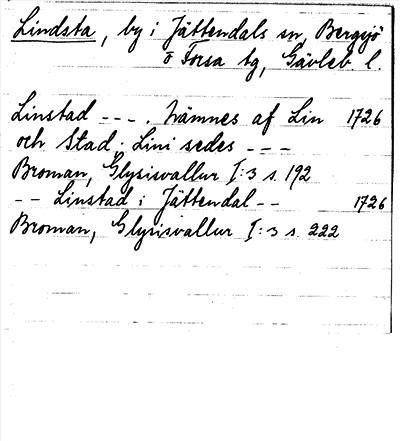 Lindsta, by i Jättendals sn, Bergsjö
o Forsa tg, Gävleb. l.
Linstad ---. Nämnes af Lin 1726
och Stad; Lini sedes ---
Broman, Glysisvallur I:3 s. 192
-- Linstad i Jättendal -- 1726
Broman, Glysisvallur I:3 s. 222